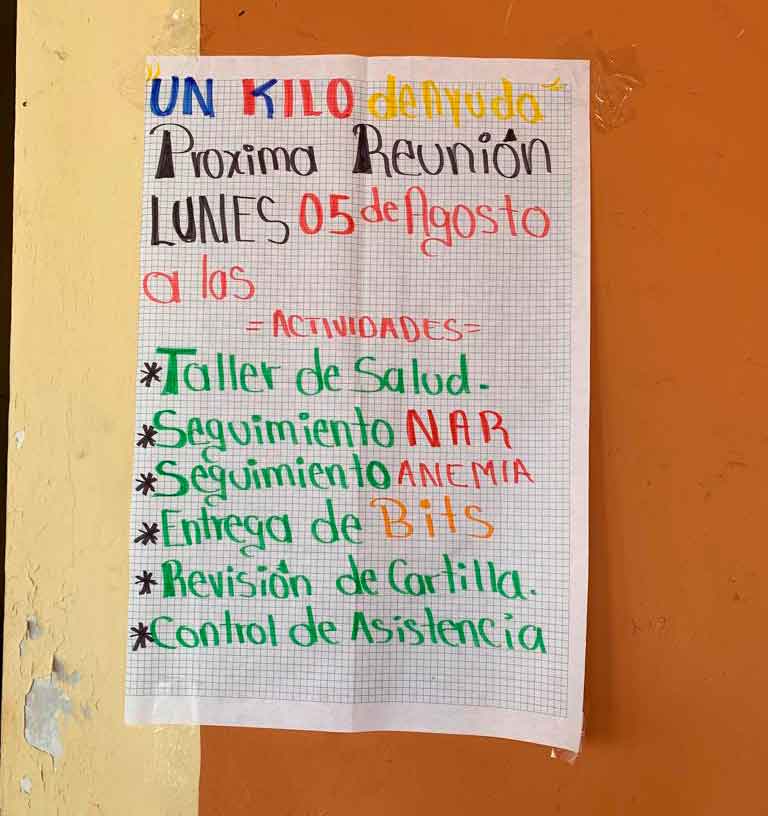 "UN KILO de Ayuda"
Proxima Reunión
LUNES 05 de Agosto
a las
=ACTIVIDADES=
*Taller de Salud.
*Seguimiento NAR
*Seguimiento ANEMIA
*Entrega de Bits
*Revisión de Cartilla.
*Control de Asistencia